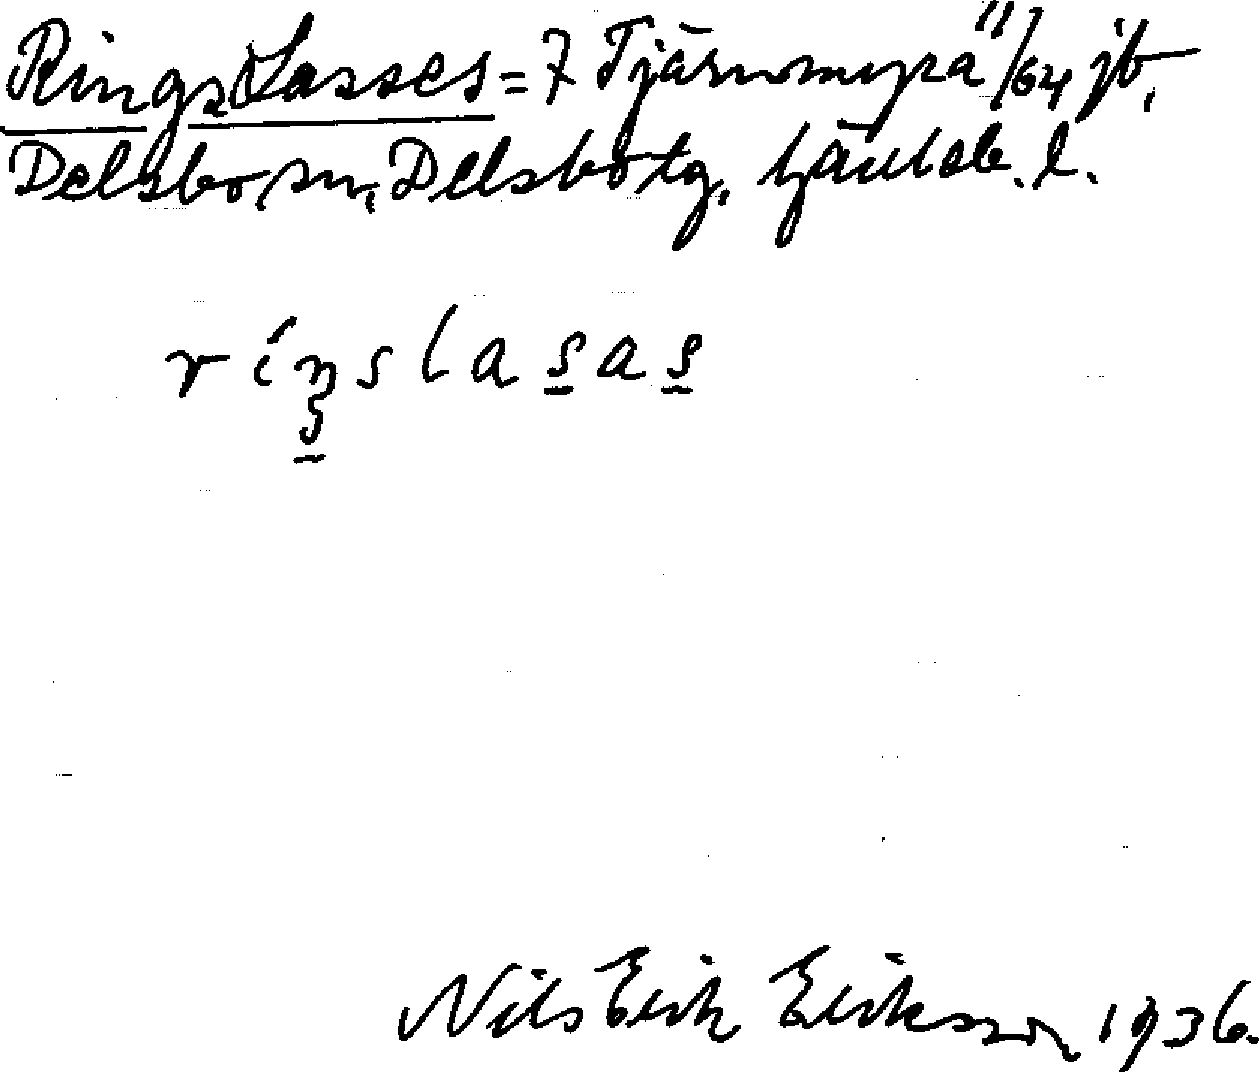 Rings Lasses = 7 Tjärnomyra 11/64 jb,
Delsbo, sn, Delsbo tg. Gävleb. l.
ríŋslasas
Nils Erik Eriksson 1936.